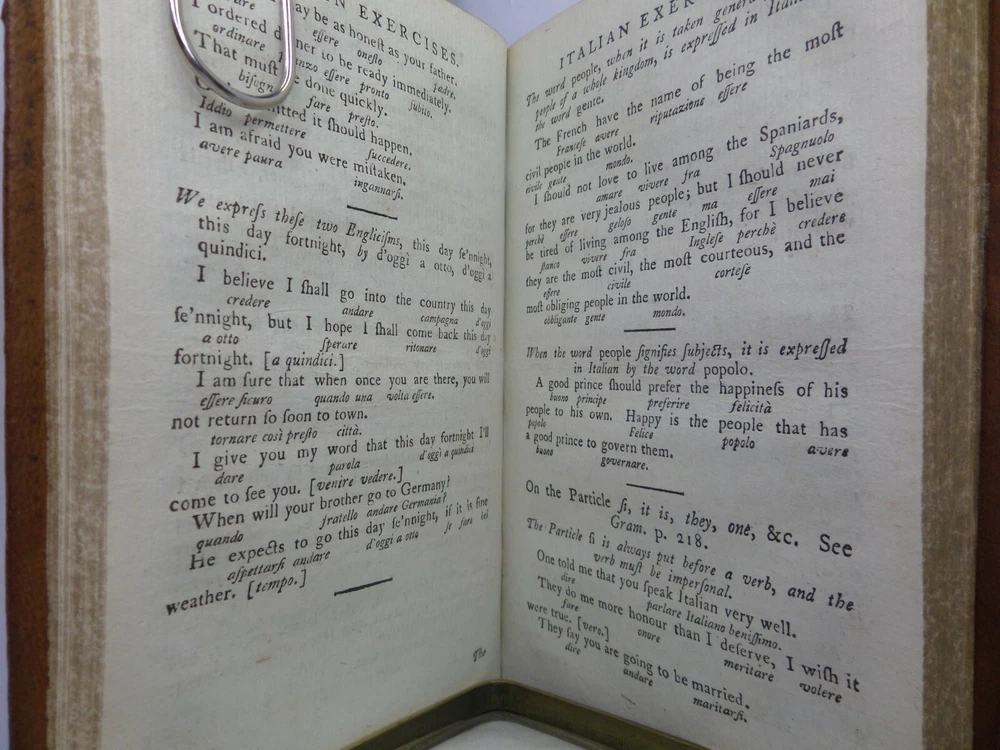 N EXERCISES.
ay be as honeſt as your father.
eſſere oneſto padre.
I ordered d nner to be ready immediately.
ordinare anzo eſſere pronto ſubito.
That muſt e done quickly.
biſogn fare preſto.
mitted it ſhould happen.
Iddio permettere ſuccedere.
I am afraid you were miſtaken.
avere paura ingannarſi.
We expreſs theſe two Engliciſms, this day ſe'nnight,
this day fortnight, by d'oggi a otto, d'oggi a
quindici.
I believe I ſhall go into the country this day
credere andare campagna d'oggi
ſe'nnight, but I hope I ſhall come back this day
a otto ſperare ritonare d'oggi
fortnight. [a quindici.]
I am ſure that when once you are there, you will
eſſere ſicuro quando una volta eſſere.
not return ſo ſoon to town.
tornare così preſto città.
I give you my word that this day fortnight I'll
dare parola d'oggi a quindici
come to ſee you. [venire vedere.]
When will your brother go to Germany?
quando fratello andare Germania?
He expects to go this day ſe'nnight, if it is fine
aſpettarſi andare d'oggi a otto ſe fare bel
weather. [tempo.]
The
ITALIAN EXER
The word people, when it is taken genera
people of a whole kingdom, is expreſſed in Italia
the word gente.
The French have the name of being the moſt
Franceſe avere riputazione eſſere
civil people in the world.
civile gente mondo.
I ſhould not love to live among the Spaniards,
amare vivere fra Spagnuolo
for they are very jealous people; but I ſhould never
perchè eſſere geloſo gente ma eſſere mai
be tired of living among the Engliſh, for I believe
ſtanco vivere fra Ingleſe perchè credere
they are the moſt civil, the moſt courteous, and the
eſſere civile corteſe
moſt obliging people in the world.
obbligante gente mondo.
When the word people ſignifies ſubjects, it is expreſſed
in Italian by the word popolo.
A good prince ſhould prefer the happineſs of his
buono principe preferire felicità
people to his own. Happy is the people that has
popolo Felice popolo avere
a good prince to govern them.
buono governare.
On the Particle ſi, it is, they, one, &c. See
Gram. p. 218.
The Particle ſi is always put before a verb, and the
verb muſt be imperſonal.
One told me that you ſpeak Italian very well.
dire parlare Italiano beniſſimo.
They do me more honour than I deſerve, I wiſh it
fare onore meritare volere
were true. [vero.]
They ſay you are going to be married.
dire andare maritarſi.